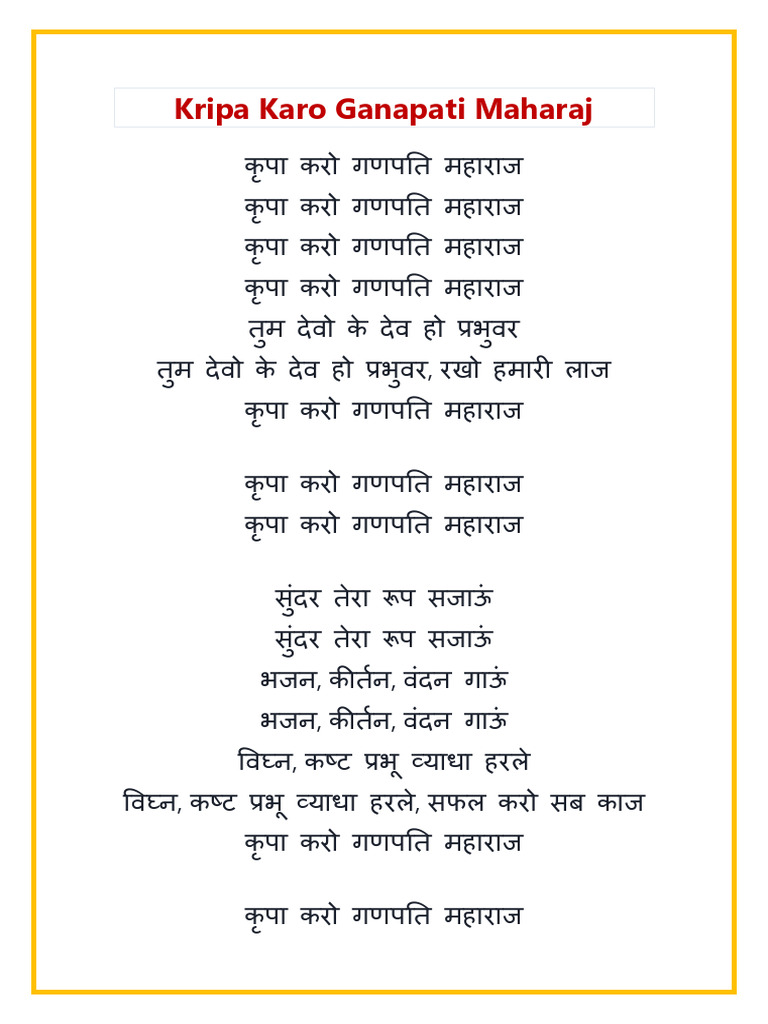 Kripa Karo Ganapati Maharaj
कृपा करो गणपति महाराज
कृपा करो गणपति महाराज
कृपा करो गणपति महाराज
कृपा करो गणपति महाराज
तुम देवो के देव हो प्रभुवर
तुम देवो के देव हो प्रभुवर, रखो हमारी लाज
कृपा करो गणपति महाराज
कृपा करो गणपति महाराज
कृपा करो गणपति महाराज
सुंदर तेरा रूप सजाऊं
सुंदर तेरा रूप सजाऊं
भजन, कीर्तन, वंदन गाऊं
भजन, कीर्तन, वंदन गाऊं
विघ्न, कष्ट प्रभू व्याधा हरले
विघ्न, कष्ट प्रभू व्याधा हरले, सफल करो सब काज
कृपा करो गणपति महाराज
कृपा करो गणपति महाराज